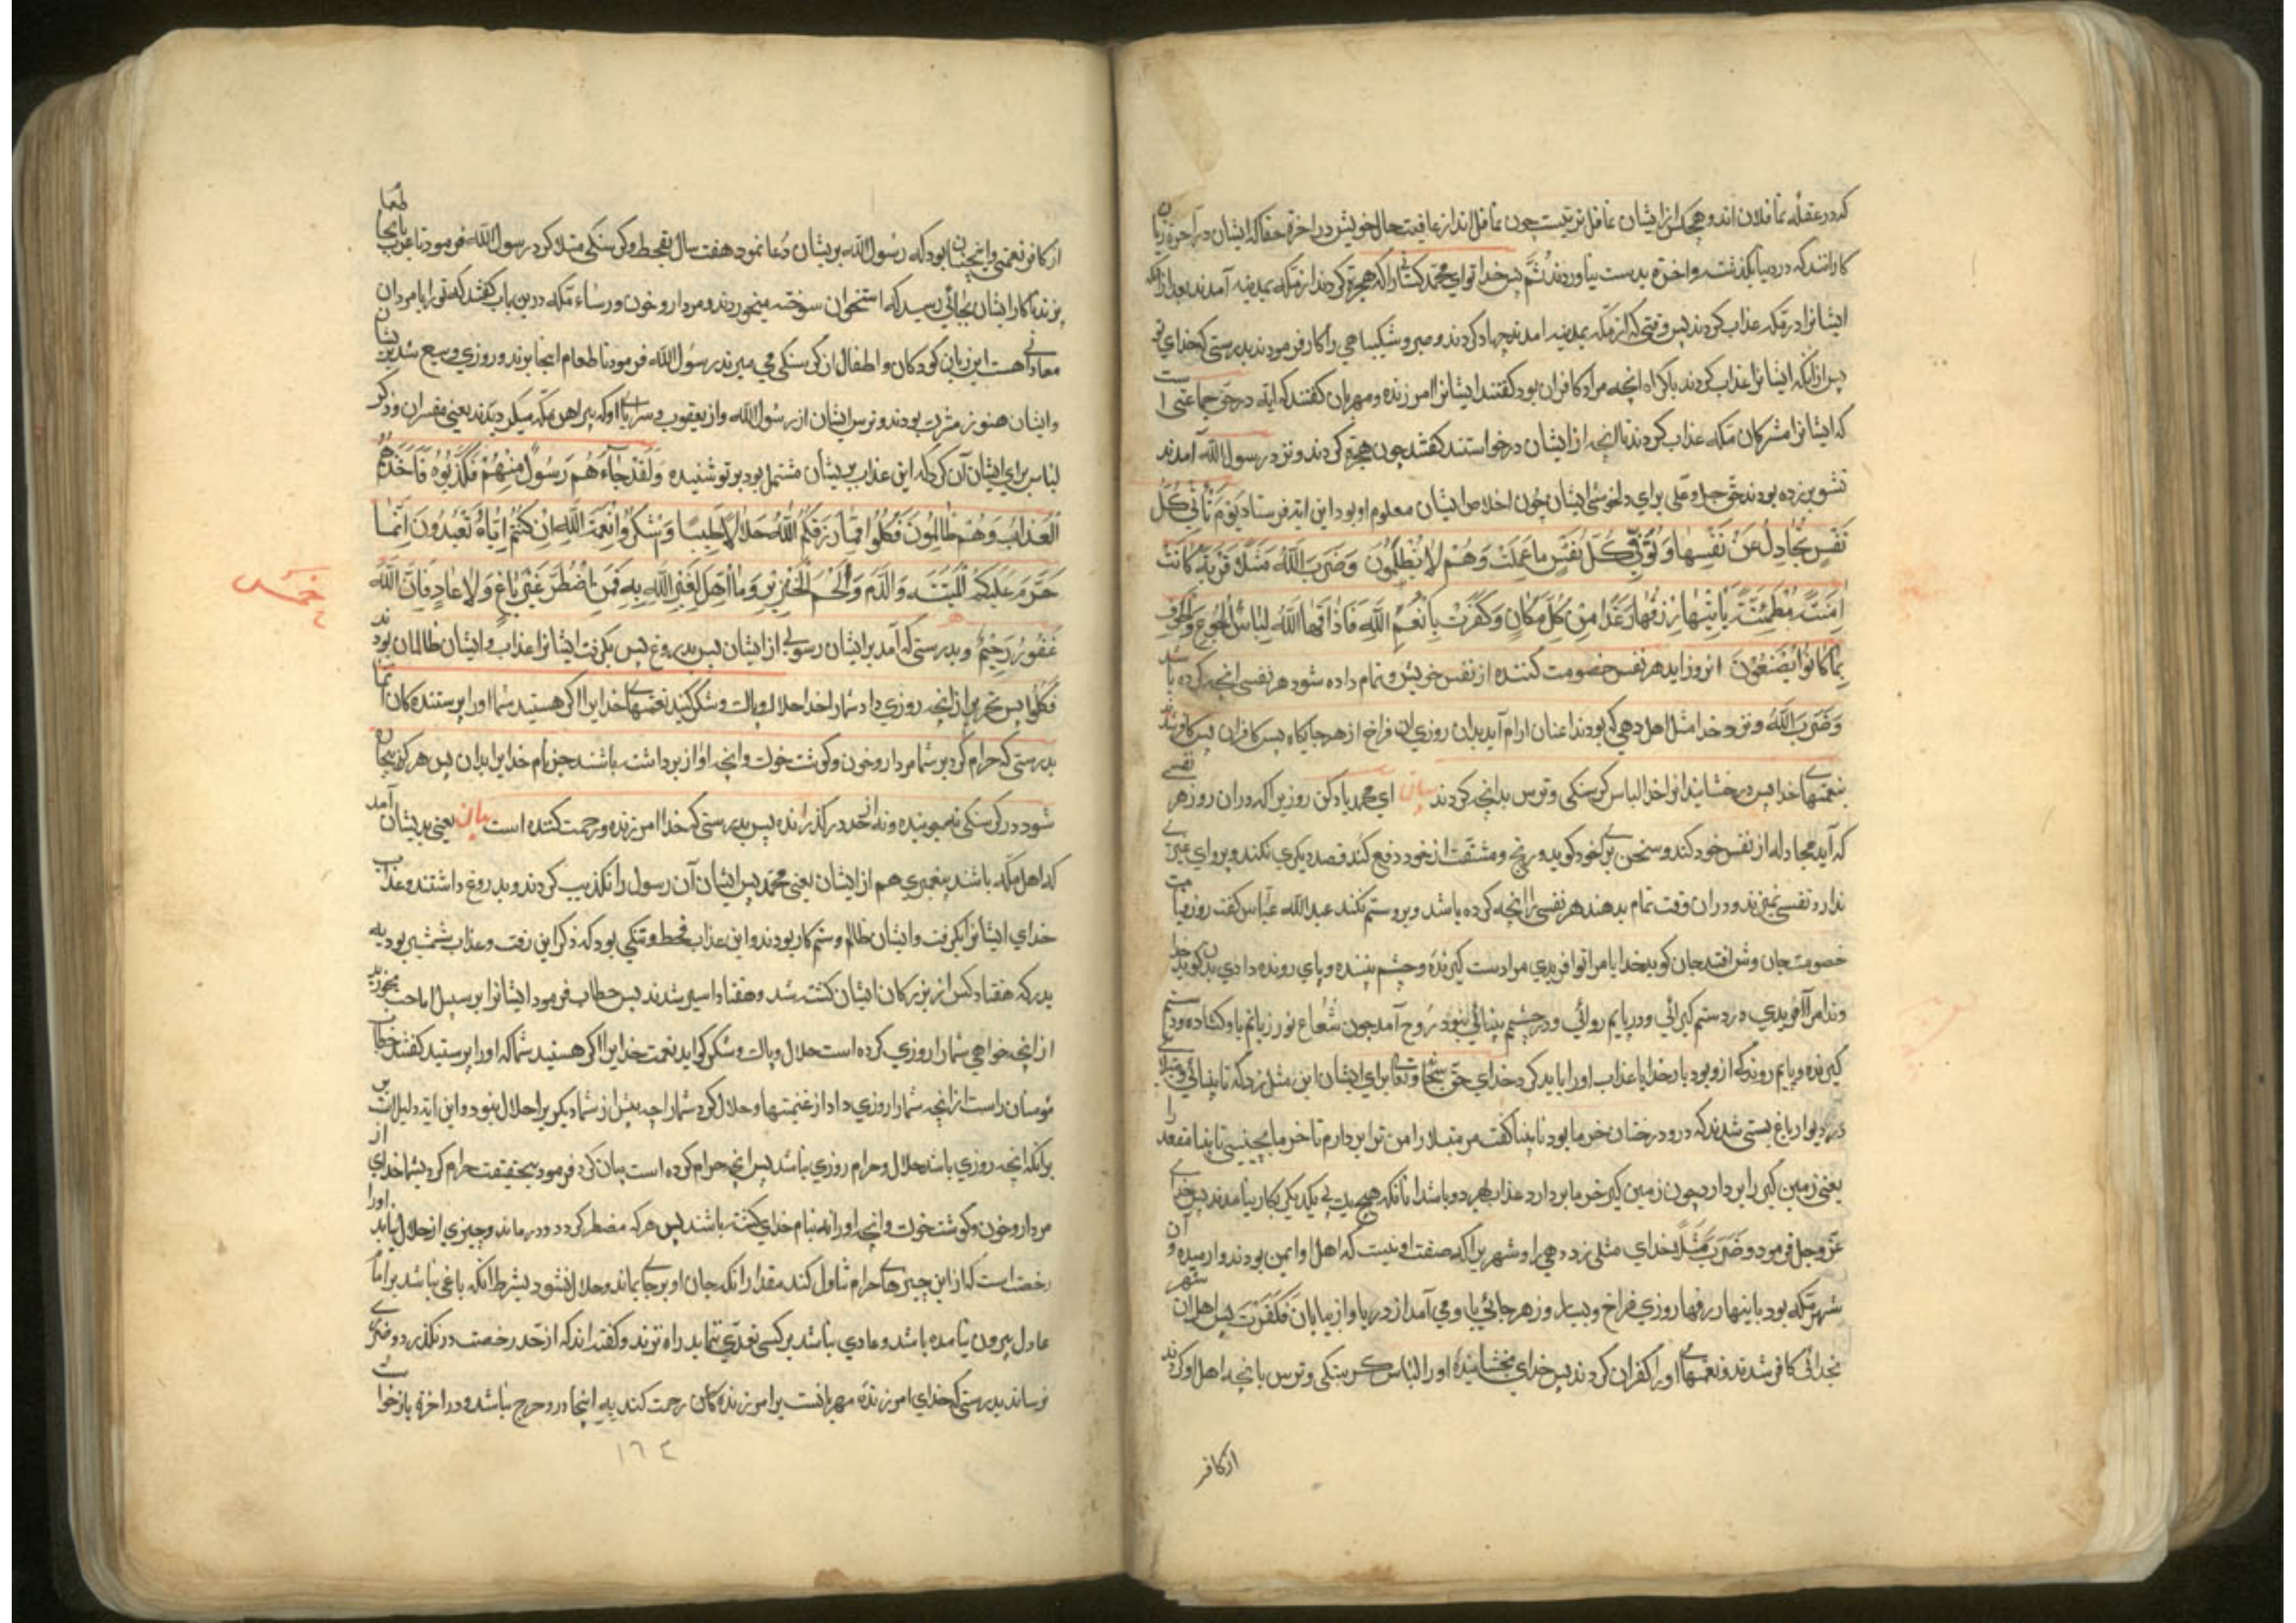 که در غفلت غافلان اند و هیچکس از ایشان غافل تر نیست چون غافل اند از عاقبت حال خویش در آخرة حقا که ایشان در آخرة زیان
کارانند که در دنیا بگذشت و آخرة بدست نیاوردند ثُمَّ پس خدا تو ای محمد کسانرا که هجرة کردند از مکه بمدینه آمدند بعد از آنکه
ایشانرا در مکه عذاب کردند پس وقتی که از مکه بمدینه امدند جهاد کردند و صبر و شکیبایی را کار فرمودند بدرستی که خدای تو
پس از انکه ایشانرا عذاب کردند باکراه انچه مراد کافران بود کفتند ایشانرا امرزنده و مهربان کفتند که ایه در حق جماعتی است
که ایشانرا مشرکان مکه عذاب کردند تا انچه از ایشان درخواستند کفتند چون هجرة کردند و نزد رسول الله آمدند
تشویر زده بودند حق جل و علی برای دلخوشی ایشان چون اخلاص ایشان معلوم او بود این ایه فرستاد یَوْمَ تَأْتِي كُلُّ
نَفْسٍ تُجَادِلُ عَنْ نَفْسِهَا وَتُوَفَّى كُلُّ نَفْسٍ مَا عَمِلَتْ وَهُمْ لَا يُظْلَمُونَ وَضَرَبَ اللَّهُ مَثَلًا قَرْيَةً كَانَتْ
اٰمِنَةً مُطْمَئِنَّةً يَأْتِيهَا رِزْقُهَا رَغَدًا مِنْ كُلِّ مَكَانٍ فَكَفَرَتْ بِأَنْعُمِ اللَّهِ فَأَذَاقَهَا اللَّهُ لِبَاسَ الْجُوعِ وَالْخَوْفِ
بِمَا كَانُوا يَصْنَعُونَ انروز اید هر نفس خصومت کننده از نفس خویش و تمام داده شود هر نفسی انچه کرده باشد
وَضَرَبَ اللَّهُ و بزد خدا مثل اهل دهی که بودند ارام آید بدان روزی ان فراخ از هر جایکاه پس کافران
بنعمتهای خدا پس درخشانید انرا خدا لباس کرسنکی و ترس بدانچه کردند بیان ای محمد یاد کن روزیرا که دران روز هر نفسی
که آید مجادله از نفس خود کند و سخن برای خود کوید و رنج و مشقت از خود دفع کند قصد دیکری نکند و پروای غیری
ندارد نفسی دران وقت تمام بدهند هر نفسی را انچه کرده باشد و برو ستم نکنند عبد الله عباس کفت روز قیامت
خصومت جان و تن افتد جان کوید خدایا مرا تو افریدی مرا دست کیرنده و چشم بیننده و پای رونده دادی تن کوید خدا
وندا مرا افریدی نه در دستم کیرائی و در پایم روائی و در چشم بینائی نبود روح آمد چون شعاع نور زبانم باو کشاده و دستم
کیرنده و پایم رونده که ازو بود بار خدایا عذاب اورا باید کرد خدای حق سبحانه و تعالی برای ایشان این مثل زد که نابینائی و مقعدی
در دیوار باغ بستی شدند که درو درختان خرما بود نابینا کفت من مبتلا را من ترا بردارم تا خرما بچینی تا بینا مقعد را
یعنی زمین کیر را بردارد چون زمین کیر خرما بردارد عذاب هر دو باشد انانکه هیچ یک بی یکدیکر بکار نیامدند پس خدای
عز و جل فرمود وَضَرَبَ مَثَلًا خدای مثلی زد دهی را و شهریرا که صفت او نیست که اهل او ایمن بودند و ارمیده و آن
شهر مکه بود یاتیها رزقها روزی فراخ و بسیار و ز هر جائی باو می آمد از دریا و از بیابان فَكَفَرَتْ پس اهل ان شهر
بخدائی کافر شدند و نعمتهای اورا کفران کردند پس خدای بخشانیده اورا لباس کرسنکی و ترس بانچه اهل او کردند
ازکافر
از کافر نعمتی و انچنان بود که رسول الله بریشان دعا نمود هفت سال بقحط و کرسنکی مبتلا کرد رسول الله فرمود تا عرب طعام بانجا
نبرند تا کار ایشان بجائی رسید که استخوان سوخته میخوردند و مردار و خون و رساء مکه درین باب کفتند که تورا با مردان
معاداتی هست این زیان کودکان و اطفال از کرسنکی می میرند رسول الله فرمود تا طعام انجا بردند و روزی وسیع شد بریشان
و ایشان هنوز مشرک بودند و ترس ایشان از رسول الله و از یعقوب و سرایای او که پیرامن مکه میکردیدند یعنی مفسران و ذکر
لباس برای ایشان آن کرد که این عذاب بریشان مشتمل بود بر تو شنیده وَلَقَدْ جَاءَهُمْ رَسُولٌ مِنْهُمْ فَكَذَّبُوهُ فَأَخَذَهُمُ
الْعَذَابُ وَهُمْ ظَالِمُونَ فَكُلُوا مِمَّا رَزَقَكُمُ اللَّهُ حَلَالًا طَيِّبًا وَاشْكُرُوا نِعْمَةَ اللَّهِ اِنْ كُنْتُمْ اِيَّاهُ تَعْبُدُونَ اِنَّمَا
حَرَّمَ عَلَيْكُمُ الْمَيْتَةَ وَالدَّمَ وَلَحْمَ الْخِنْزِيرِ وَمَا اُهِلَّ لِغَيْرِ اللَّهِ بِهِ فَمَنِ اضْطُرَّ غَيْرَ بَاغٍ وَلَا عَادٍ فَاِنَّ اللَّهَ
خمس
غَفُورٌ رَحِيمٌ و بدرستی که آمد بریشان رسولی از ایشان پس بدروغ پس بکرفت ایشانرا عذاب و ایشان ظالمان بودند
فَكُلُوا پس بخورید از انچه روزی داد شمارا خدا حلال و پاک و شکر کنید نعمتهای خدایرا اکر هستید شما اورا پرستندکان اِنَّمَا
بدرستی که حرام کرد بر شما مردار و خون و کوشت خوک و انچه آواز برداشته باشند جز نام خدایرا بدان پس هر که بیچاره
شود در کرسنکی نه جوینده و نه از حد درکذرانده پس بدرستی که خدا امرزنده و رحمت کننده است بیان یعنی بدیشان آمد
که اهل مکه باشند پیغمبری هم از ایشان یعنی محمد پس ایشان آن رسول را تکذیب کردند و بدروغ داشتند و عذاب
خدای ایشانرا بکرفت و ایشان ظالم و ستم کار بودند و این عذاب قحط و تنکی بود که ذکر این رفت و عذاب شمشیر بود به
بدر که هفتاد کس از بزرکان ایشان کشته شد و هفتاد اسیر شدند پس خطاب فرمود ایشانرا بر سبیل اباحت بخورید
از انچه خواهی شمارا روزی کرده است حلال و پاک و شکر کوئید نعمت خدایرا اکر هستید شما که اورا پرستید کفتند خطاب
مؤمنان راست از انچه شمارا روزی داد از غنیمتها و حلال کرد شمارا چه پیش از شما دیکریرا حلال نبود و این ایه دلیل است بر
برآنکه انچه روزی باشد حلال و حرام روزی نباشد پس انچه حرام کرده است بیان کرد فرمود بحقیقت حرام کرد بشما خدای از
مردار و خون و کوشت خوک و انچه اورا نه بنام خدای کشته باشند پس هر که مضطر کردد و درماند و چیزی از حلال نیابد اورا
رخصت است که ازین چیزهای حرام تناول کند مقدار انکه جان او برجای بماند و حلال نشود بشرط انکه باغی نباشد بر امام
عادل بیرون نیامده باشد و عادی نباشد بر کسی تعدی ننماید راه نزند و کفته اند که از حد رخصت در نکذرد و ضرری
نرساند بدرستی که خدای امرزنده مهربانست برامرزنده کان رحمت کند به اینجا درو حرج نباشد و در اخرة بازخواست
١٦٤